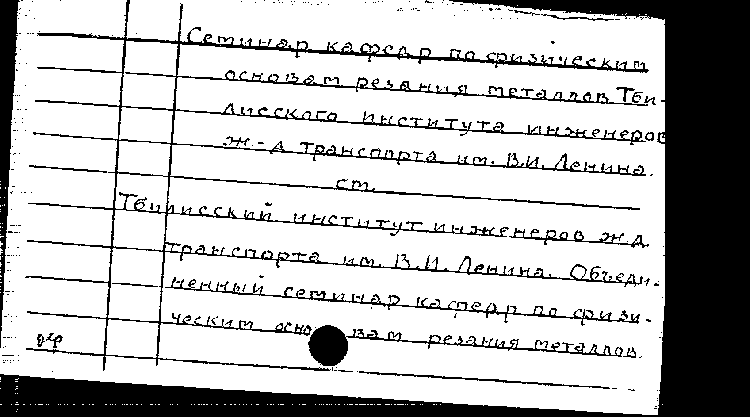 Семинар кафедр по физическим
основам резания металлов Тби-
лисского института инженеров
ж-д транспорта им. В.И. Ленина.
см.
Тбилисский институт инженеров ж.д.
транспорта им. В.И. Ленина. Объеди-
ненный семинар кафедр по физи-
ческим основам резания металлов.